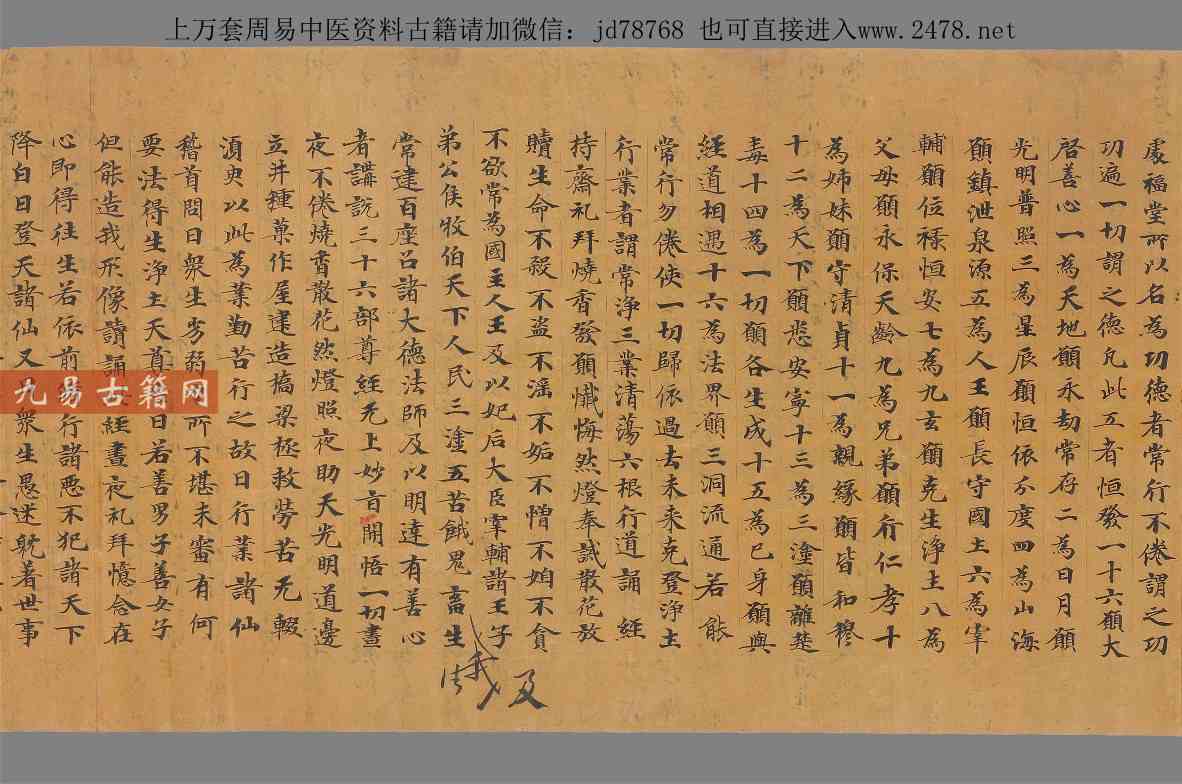 上万套周易中医资料古籍请加微信：jd78768 也可直接进入www.2478.net
處福堂所以名為功德者常行不倦謂之功
功遍一切謂之德凡此五者恒發一十六願大
啓善心一為天地願永劫常存二為日月願
光明普照三為星辰願恒依分度四為山海
願鎮泄泉源五為人王願長守國土六為宰
輔願位祿恒安七為九玄願克生浄土八為
父母願永保天齡九為兄弟願行仁孝十
為姊妹願守清貞十一為親緣願皆和穆
十二為天下願悉安寧十三為三塗願離楚
毒十四為一切願各生成十五為已身願與
經道相遇十六為法界願三洞流通若能
常行勿倦使一切歸依過去未来克登浄土
行業者謂常浄三業清蕩六根行道誦經
持齋礼拜燒香發願懺悔然燈奉誡散花放
贖生命不煞不盗不滛不妬不憎不不貪
不欲常為國主人王及以妃后大臣宰輔諸王子
弟公侯牧伯天下人民三塗五苦餓鬼畜生
常建百座吕諸大德法師及以明達有善心
者講說三十六部尊經无上妙旨開悟一切晝
夜不倦燒香散花然燈照夜助天光明道邊
立井種菓作屋建造橋梁拯救勞苦无輟
湏臾以此為業勤苦行之故曰行業諸仙
稽首問曰衆生劣弱所不堪未審有何
要法得生浄土天尊曰若善男子善女子
但能造我形像讀誦經晝夜礼拜憶念在
心即得往生若依前行諸惡不犯諸天下
降白日登天諸仙又衆生愚迷躭著世事
及
我
九易古籍网